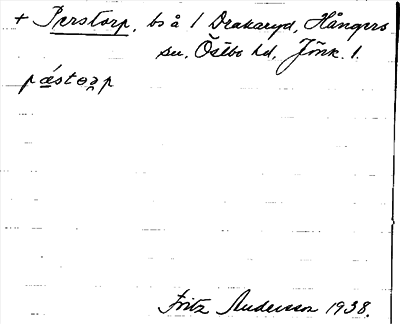 + Perstorp, bs å 1 Drakaryd, Hångers
sn, Östbo hd, Jönk. l.
pǽstɵrp
Fritz Andersson 1938.